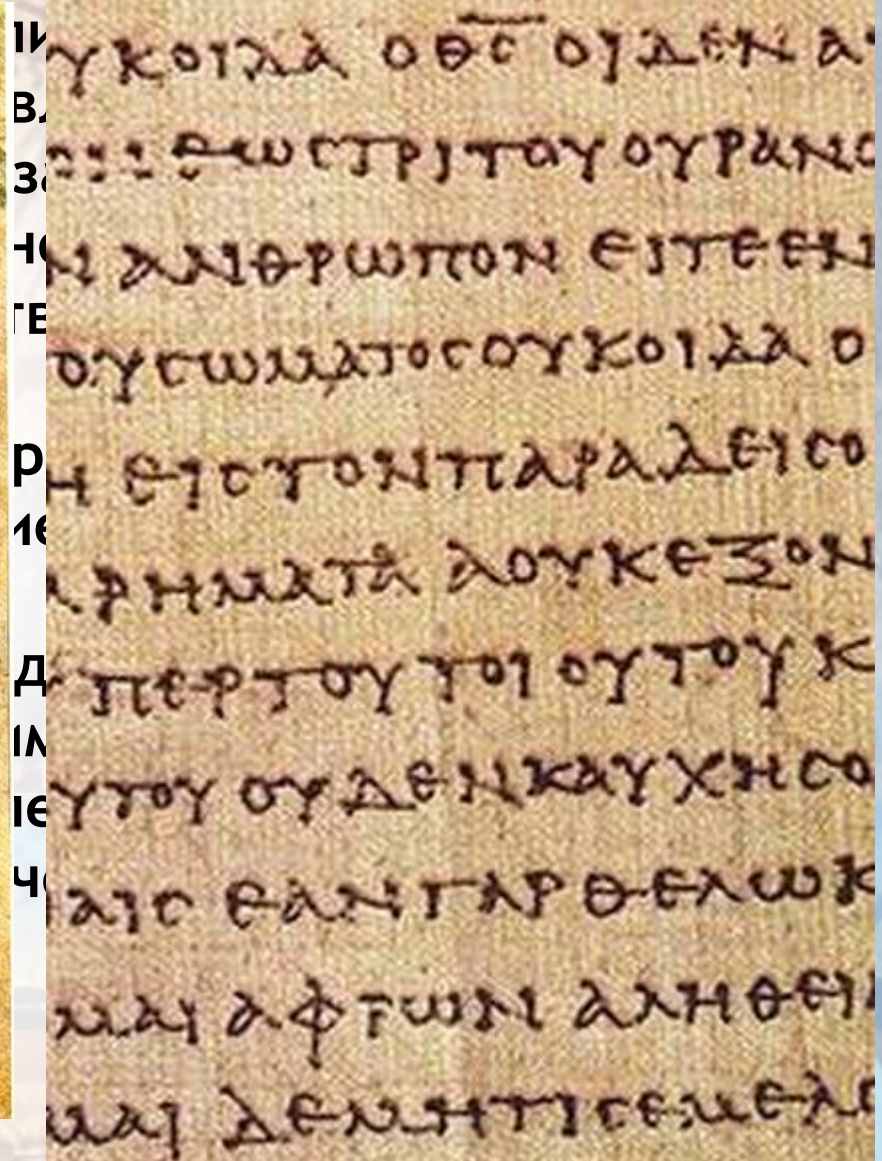 ΥΚΟΙΔΑ ΟΘ̅C̅ ΟΙΔΕΝ Α
ΕΩCΤΡΙΤΟΥ ΟΥΡΑΝΟ
Ν ΑΝΘΡΩΠΟΝ ΕΙΤΕΕΝ
ΟΥCΩΜΑΤΟCΟΥΚΟΙΔΑ Ο
Η ΕΙCΤΟΝΠΑΡΑΔΕΙCΟ
ΑΡΗΜΑΤΑ ΑΟΥΚΕΞΟΝ
ΠΕΡΤΟΥ ΤΟΙ ΟΥΤΟΥ Κ
ΥΤΟΥ ΟΥΔΕΝΚΑΥΧΗCΟ
ΑΙC ΕΑΝ ΓΑΡ ΘΕΛΩΚ
ΜΑΙ ΑΦΡΩΝ ΑΛΗΘΕΙ
ΜΑΙ ΔΕΜΗΤΙCΕΜΕΛΟ